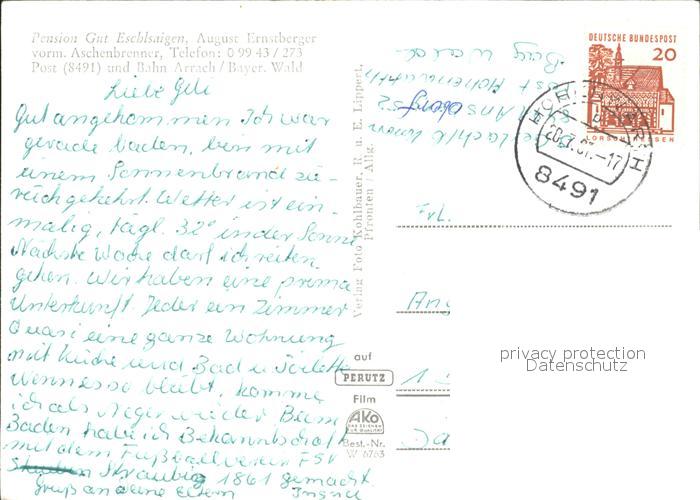 Pension Gut Eschlsaigen, August Ernstberger
vorm. Aschenbrenner, Telefon: 0 99 43 / 273
Post (8491) und Bahn Arrach / Bayer. Wald
Liebe Geli
Gut angekommen. Ich war
gerade baden, bin mit
einem Sonnenbrand zu-
rückgekehrt. Wetter ist ein-
malig, tägl. 32° in der Sonne
Nächste Woche darf ich reiten
gehen. Wir haben eine prima
Unterkunft. Jeder ein Zimmer
Quasi eine ganze Wohnung
mit Küche und Bad u. Toilette
Wenn es so bleibt, komme
ich als Neger wieder Beim
Baden habe ich Bekanntschaft
mit dem Fußballverein FSV
Straubing 1861 gemacht.
Gruß an deine Eltern
Verlag Foto Kohlbauer, R. u. E. Lippert,
Pfronten / Allg.
auf
PERUTZ
Film
AKO
DAS ZEICHEN
FÜR QUALITÄT
Best.-Nr.
W 6763
Post
DEUTSCHE BUNDESPOST
20
LORSCH/HESSEN
-17
8491
Frl.
Ang
privacy protection
Datenschutz